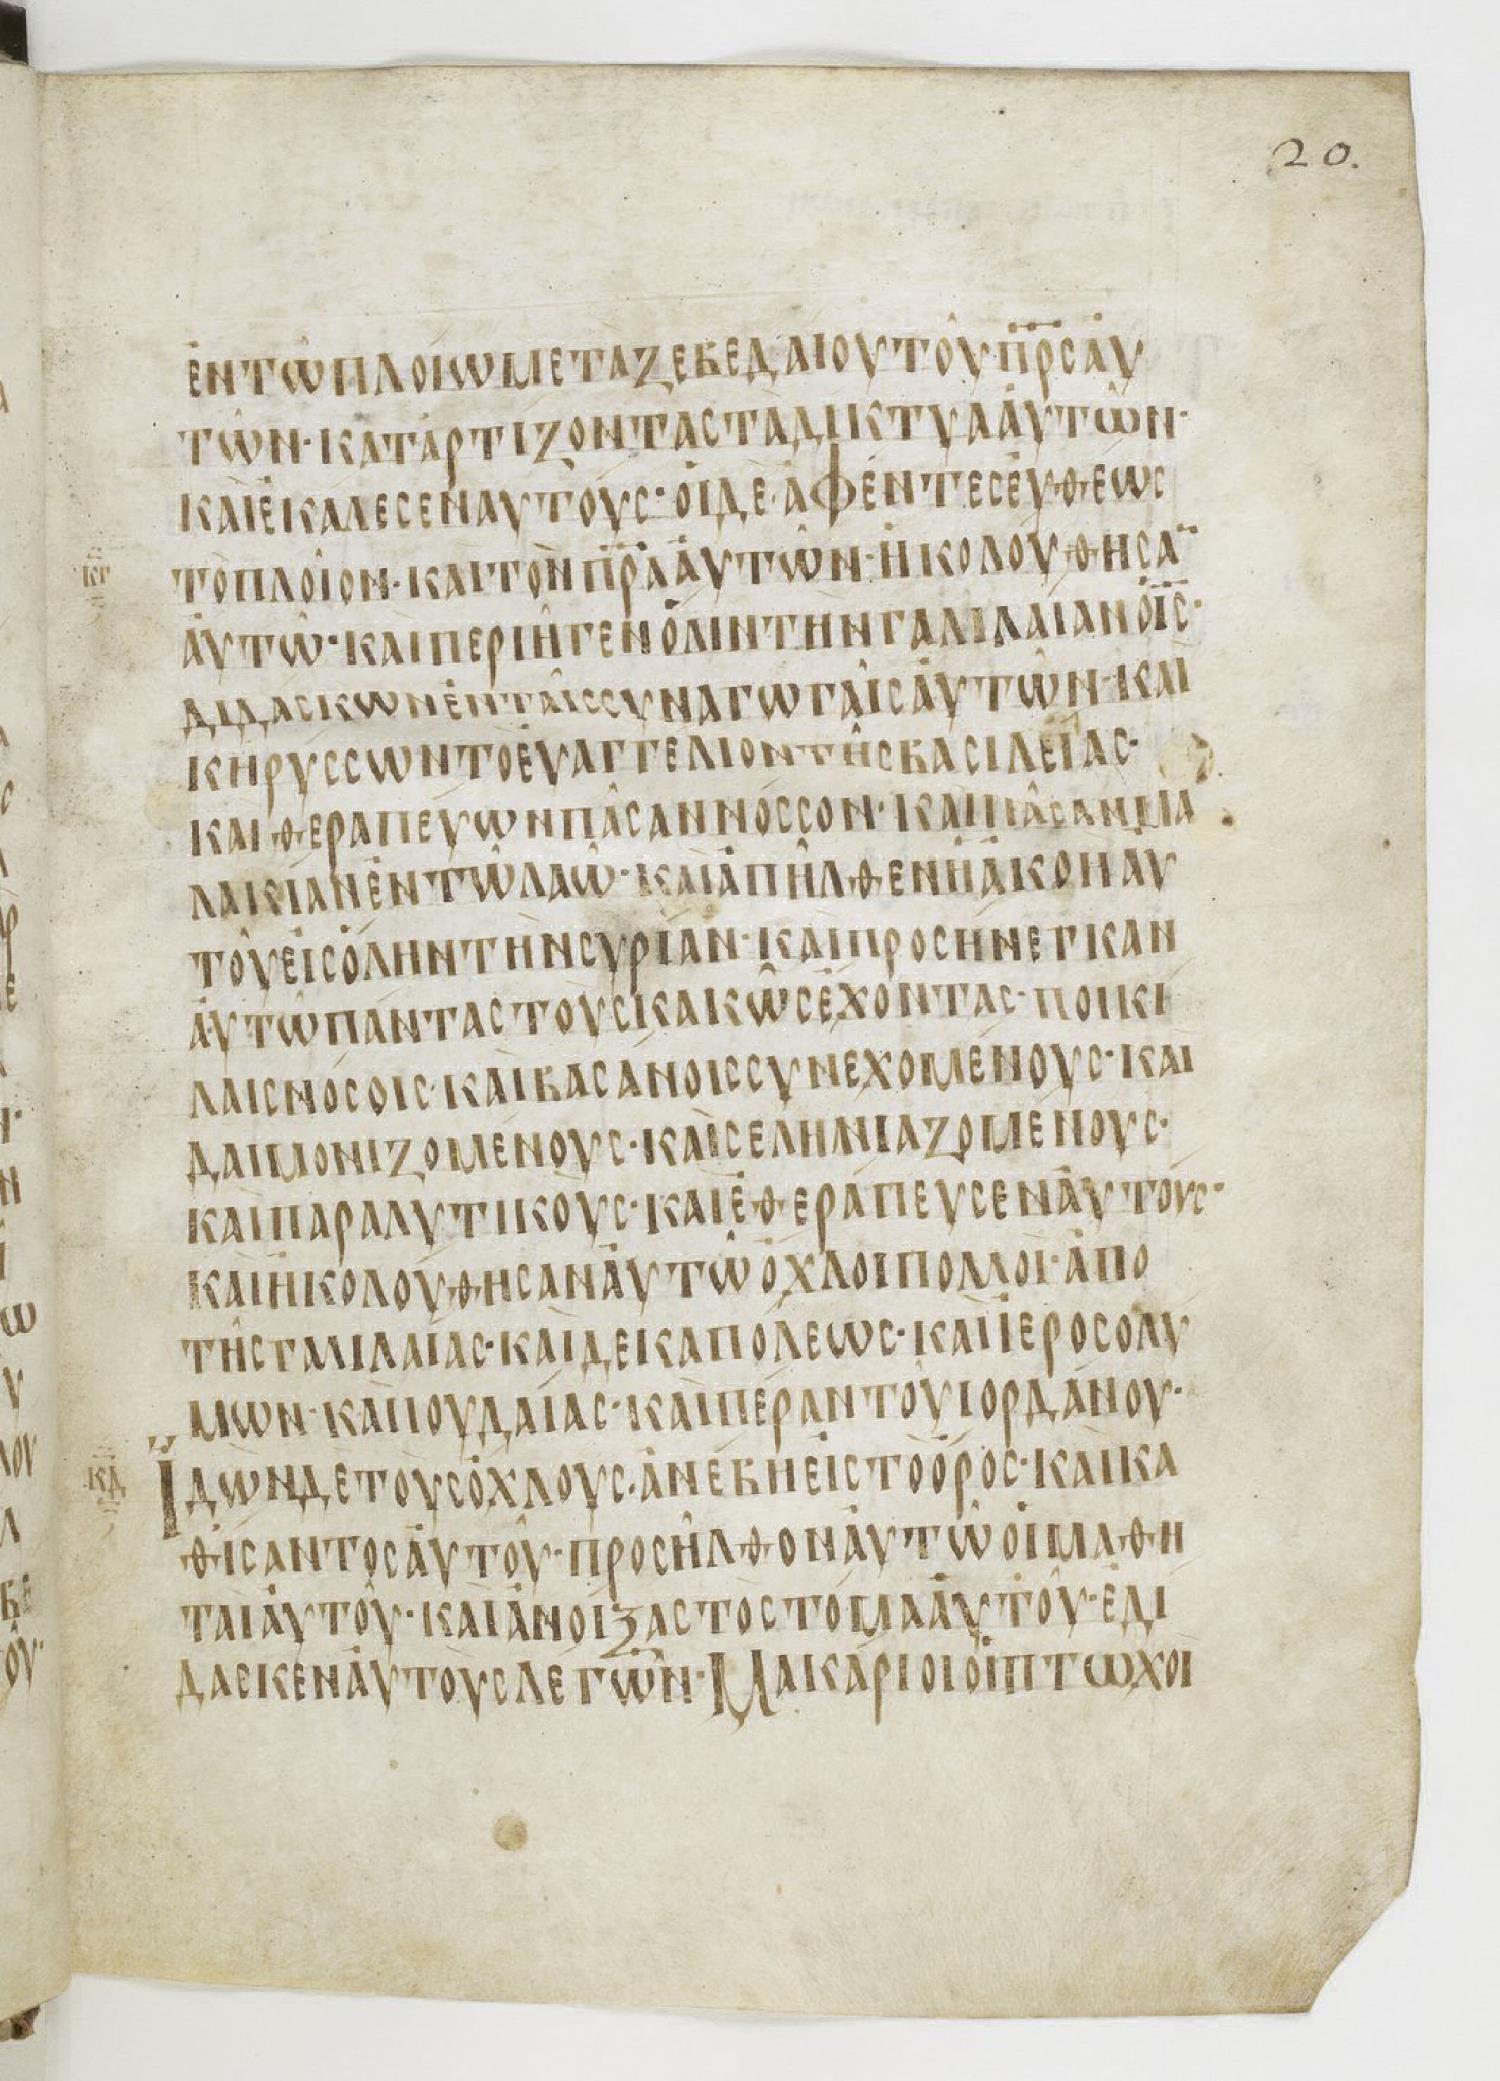 20.
ἐΝΤῶΠΛΟΙωΜΕΤΑΖΕΒΕΔΑΙΟΥΤΟῦ·Π̅Ρ̅СΑΥ
ΤῶΝ·ΚΑΤΑΡΤΙΖΟΝΤΑСΤΑΔΙΚΤΥΑΑΥΤῶΝ·
ΚΑΙΕΚΑΛΕСΕΝΑΥΤΟΥС·ΟΙΔΕ·ΑΦΕΝΤΕСΕΥΘΕωС
ΚΓ ΤΟΠΛΟΙΟΝ·ΚΑΙΤΟΝΠ̅Ρ̅ΑΑΥΤῶΝ·ΗΚΟΛΟΥΘΗСΑ̅
ΑΥΤῶ·ΚΑΙΠΕΡΙΗΓΕΝΟΛΙΝΤΗΝΓΑΛΙΛΑΙΑΝΟΙ̅С̅·
ΔΙΔΑСΚωΝΕΝΤΑΙССΥΝΑΓωΓΑΙСΑΥΤῶΝ·ΚΑΙ
ΚΗΡΥССωΝΤΟΕΥΑΓΓΕΛΙΟΝΤΗСΒΑСΙΛΕΙΑС·
ΚΑΙΘΕΡΑΠΕΥωΝΠΑСΑΝΝΟССΟΝ·ΚΑΙΠΑСΑΝΜΑ
ΛΑΚΙΑΝΕΝΤῶΛΑῶ·ΚΑΙΑΠΗΛΘΕΝΗΑΚΟΗΑΥ
ΤΟΥΕΙСΟΛΗΝΤΗΝСΥΡΙΑΝ·ΚΑΙΠΡΟСΗΝΕΓΚΑΝ
ΑΥΤωΠΑΝΤΑСΤΟΥСΚΑΚῶСΕΧΟΝΤΑС·ΠΟΙΚΙ
ΛΑΙСΝΟСΟΙС·ΚΑΙΒΑСΑΝΟΙССΥΝΕΧΟΜΕΝΟΥС·ΚΑΙ
ΔΑΙΜΟΝΙΖΟΜΕΝΟΥС·ΚΑΙСΕΛΗΝΙΑΖΟΜΕΝΟΥС·
ΚΑΙΠΑΡΑΛΥΤΙΚΟΥС·ΚΑΙΕΘΕΡΑΠΕΥСΕΝΑΥΤΟΥС·
ΚΑΙΗΚΟΛΟΥΘΗСΑΝΑΥΤῶΟΧΛΟΙΠΟΛΛΟΙ·ΑΠΟ
ΤΗСΓΑΛΙΛΑΙΑС·ΚΑΙΔΕΚΑΠΟΛΕωС·ΚΑΙΙΕΡΟСΟΛΥ
ΜωΝ·ΚΑΙΙΟΥΔΑΙΑС·ΚΑΙΠΕΡΑΝΤΟΥΙΟΡΔΑΝΟΥ·
ΚΔ ΙΔωΝΔΕΤΟΥСΟΧΛΟΥС·ΑΝΕΒΗΕΙСΤΟΟΡΟС·ΚΑΙΚΑ
ΘΙСΑΝΤΟСΑΥΤΟΥ·ΠΡΟСΗΛΘΟΝΑΥΤῶΟΙΜΑΘΗ
ΤΑΙΑΥΤΟΥ·ΚΑΙΑΝΟΙΞΑСΤΟСΤΟΜΑΑΥΤΟΥ·ΕΔΙ
ΔΑСΚΕΝΑΥΤΟΥСΛΕΓωΝ·ΜΑΚΑΡΙΟΙΟΙΠΤωΧΟΙ